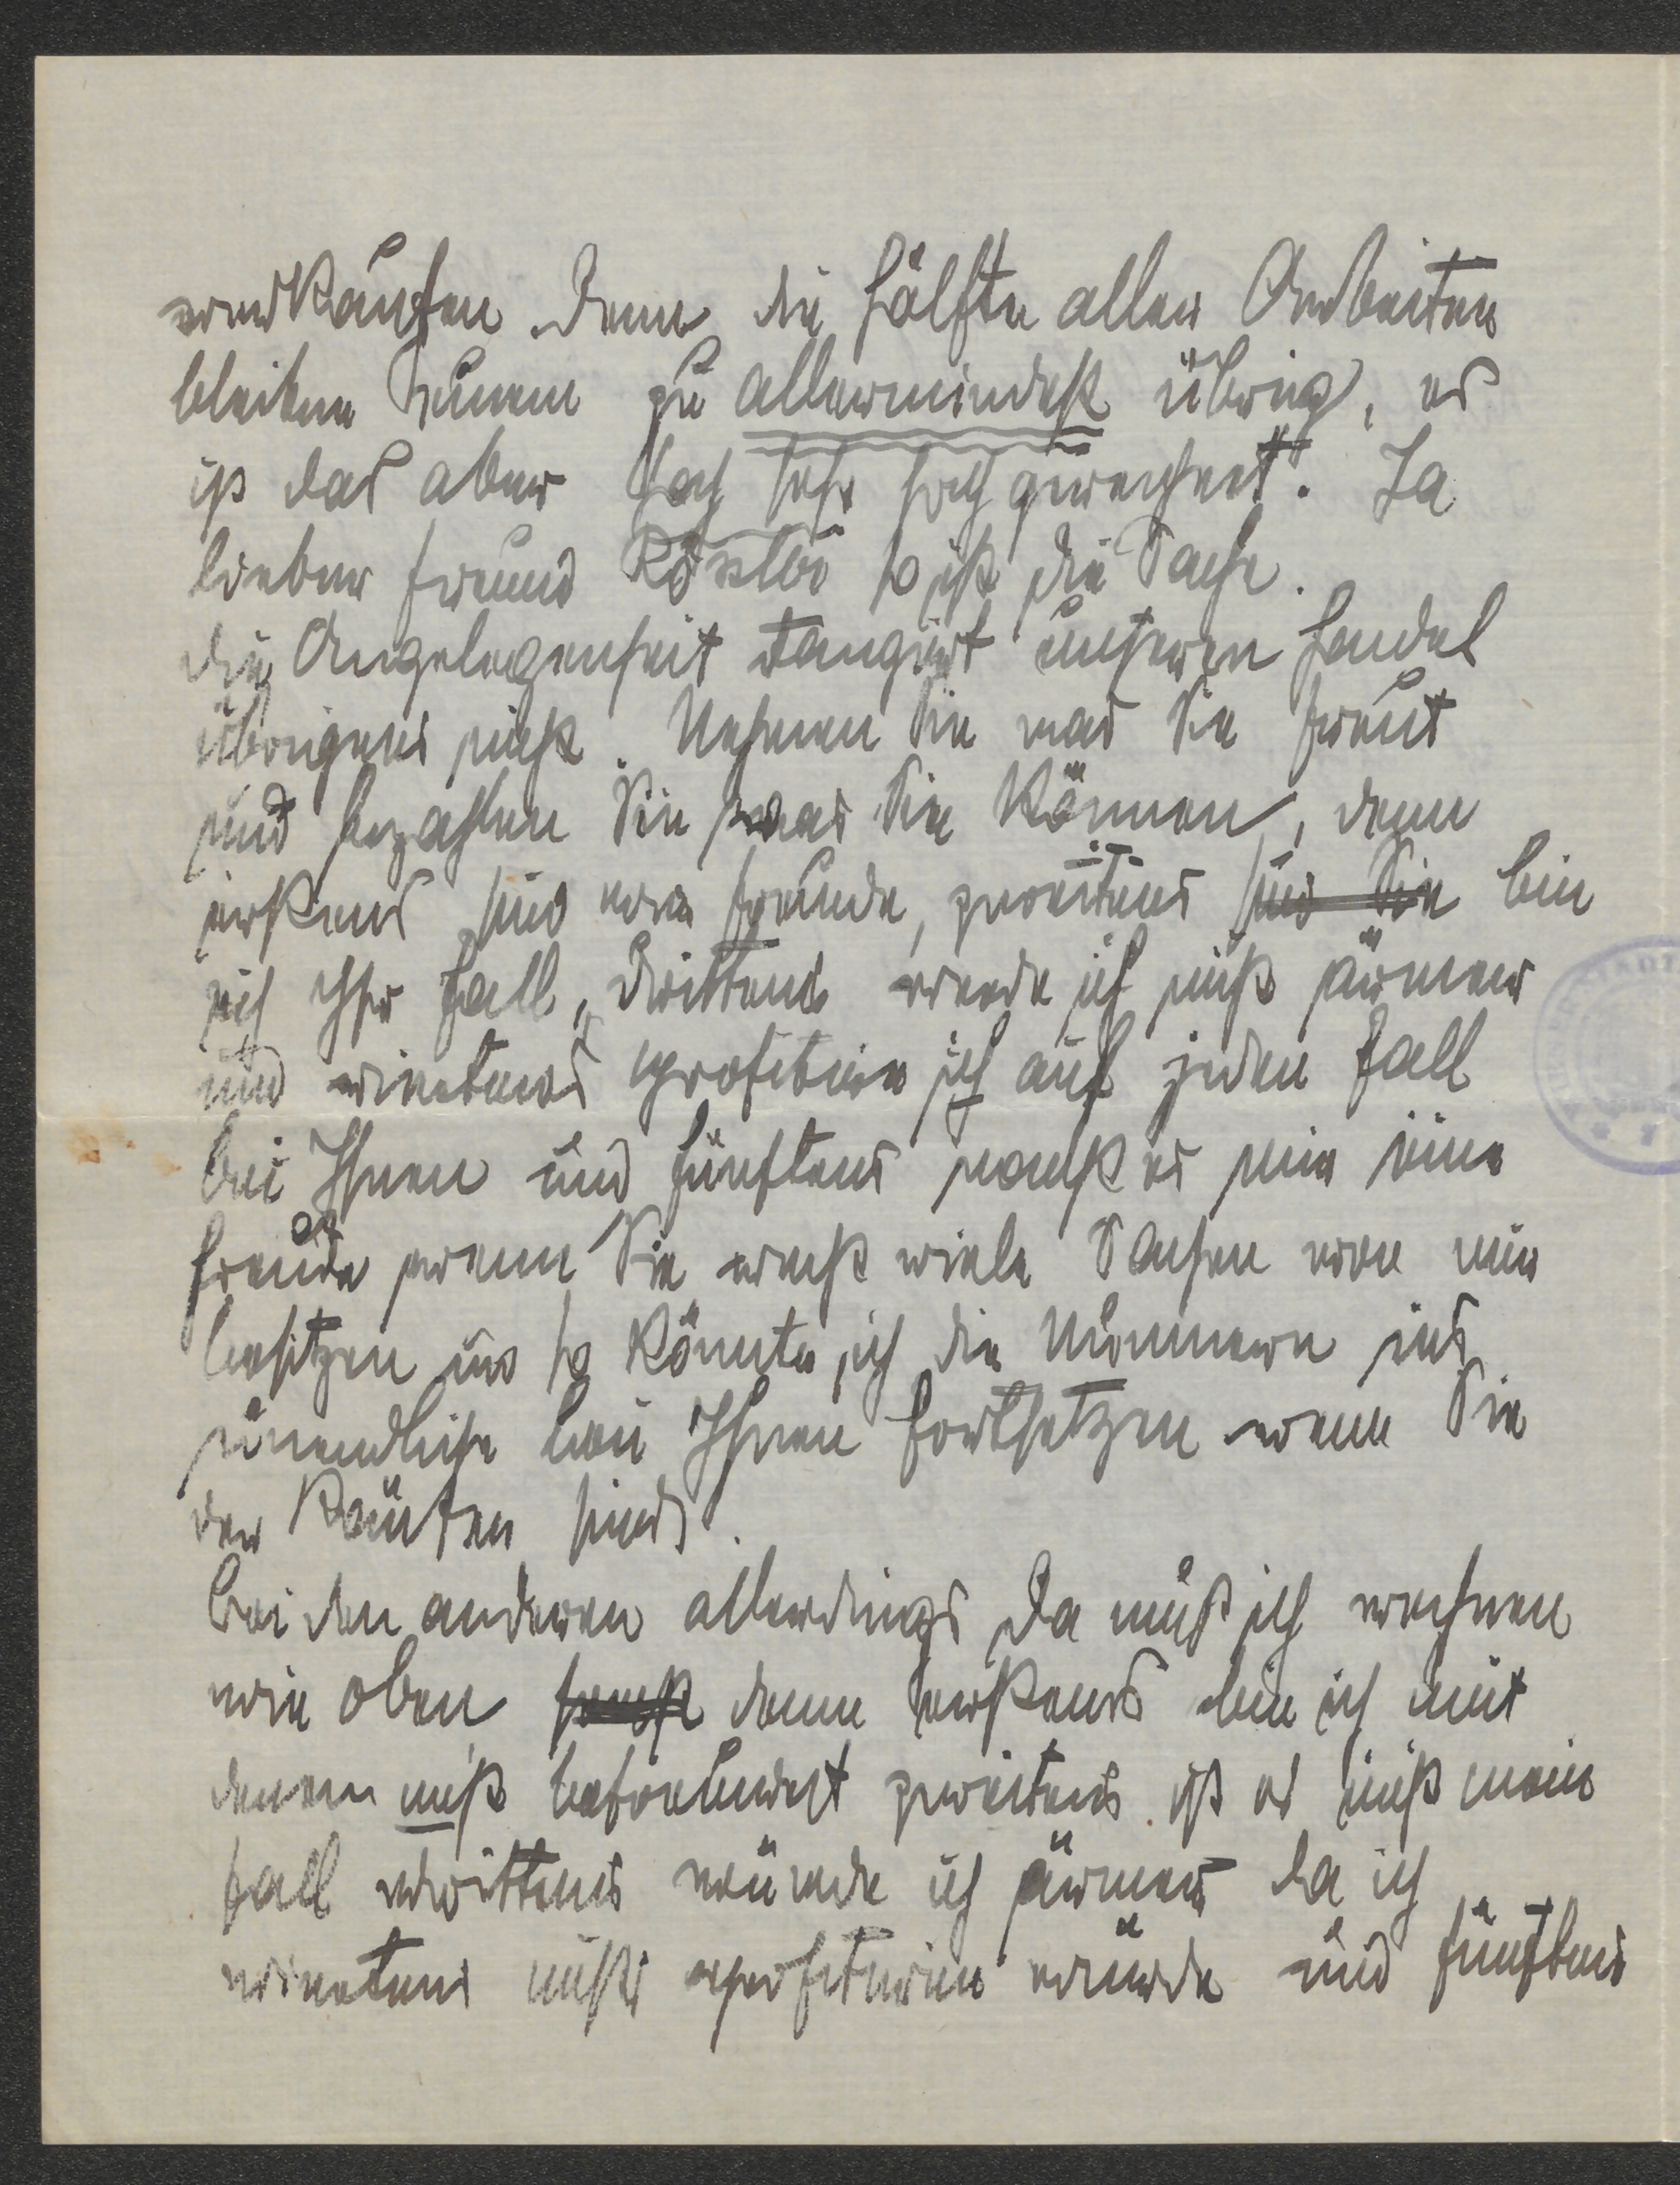 verkaufen denn die Hälfte aller Arbeiten
bleiben Ihnen zu allermindest übrig, es
ist das aber sehr hoch gerechnet. Ja
lieber Freund Rössler so ist die Sache.
die Angelegenheit tangirt unseren Handel
übrigens nicht. Nehmen Sie was Sie freut
und bezahlen Sie was Sie können, denn
erstens sind wir Freunde, zweitens sind Sie bin
ich Ihr Fall, drittens werde ich nicht ärmer
und viertens profitire ich auf jeden Fall
bei Ihnen und fünftens macht es mir eine
Freude wenn Sie recht viele Sachen von mir
besitzen und so könnte ich die Nummern ins
unendliche bei Ihnen fortsetzen wenn Sie
der Käufer sind.
Bei den anderen allerdings da muß ich rechnen
wie oben denn erstens bin ich mit
denen nicht befreundet zweitens ist es nicht mein
Fall drittens würde ich ärmer da ich
viertens nichts profitiren würde und fünftens